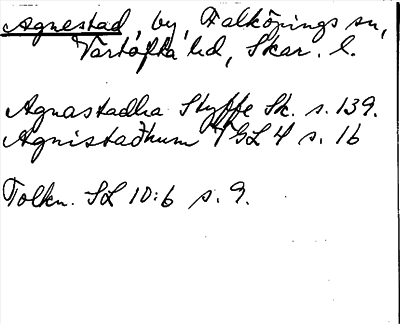 Agnestad, by, Falköpings sn,
Vartofta hd, Skar. l.
Agnastadha Styffe Sk. s. 139.
Agnistadhum VGL 4 s. 16
Tolkn. SL 10:6 s. 9.